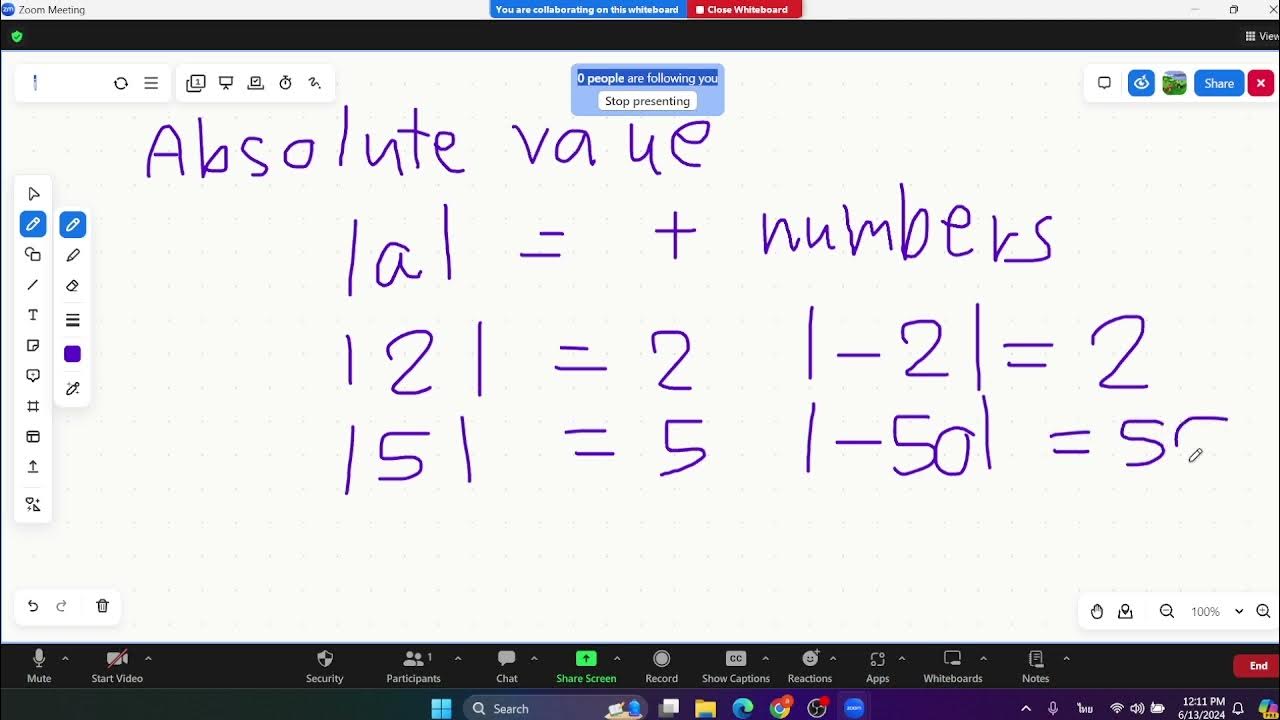 Zoom Meeting
You are collaborating on this whiteboard Close Whiteboard
View
0 people are following you
Stop presenting
Share
Absolute value
|a| = + numbers
|2| = 2 |-2| = 2
|5| = 5 |-50| = 5
100%
Mute Start Video Security Participants 1 Chat Share Screen Record CC Show Captions Reactions Apps Whiteboards Notes End
Search zoom ไทย 12:11 PM
6/13/2024